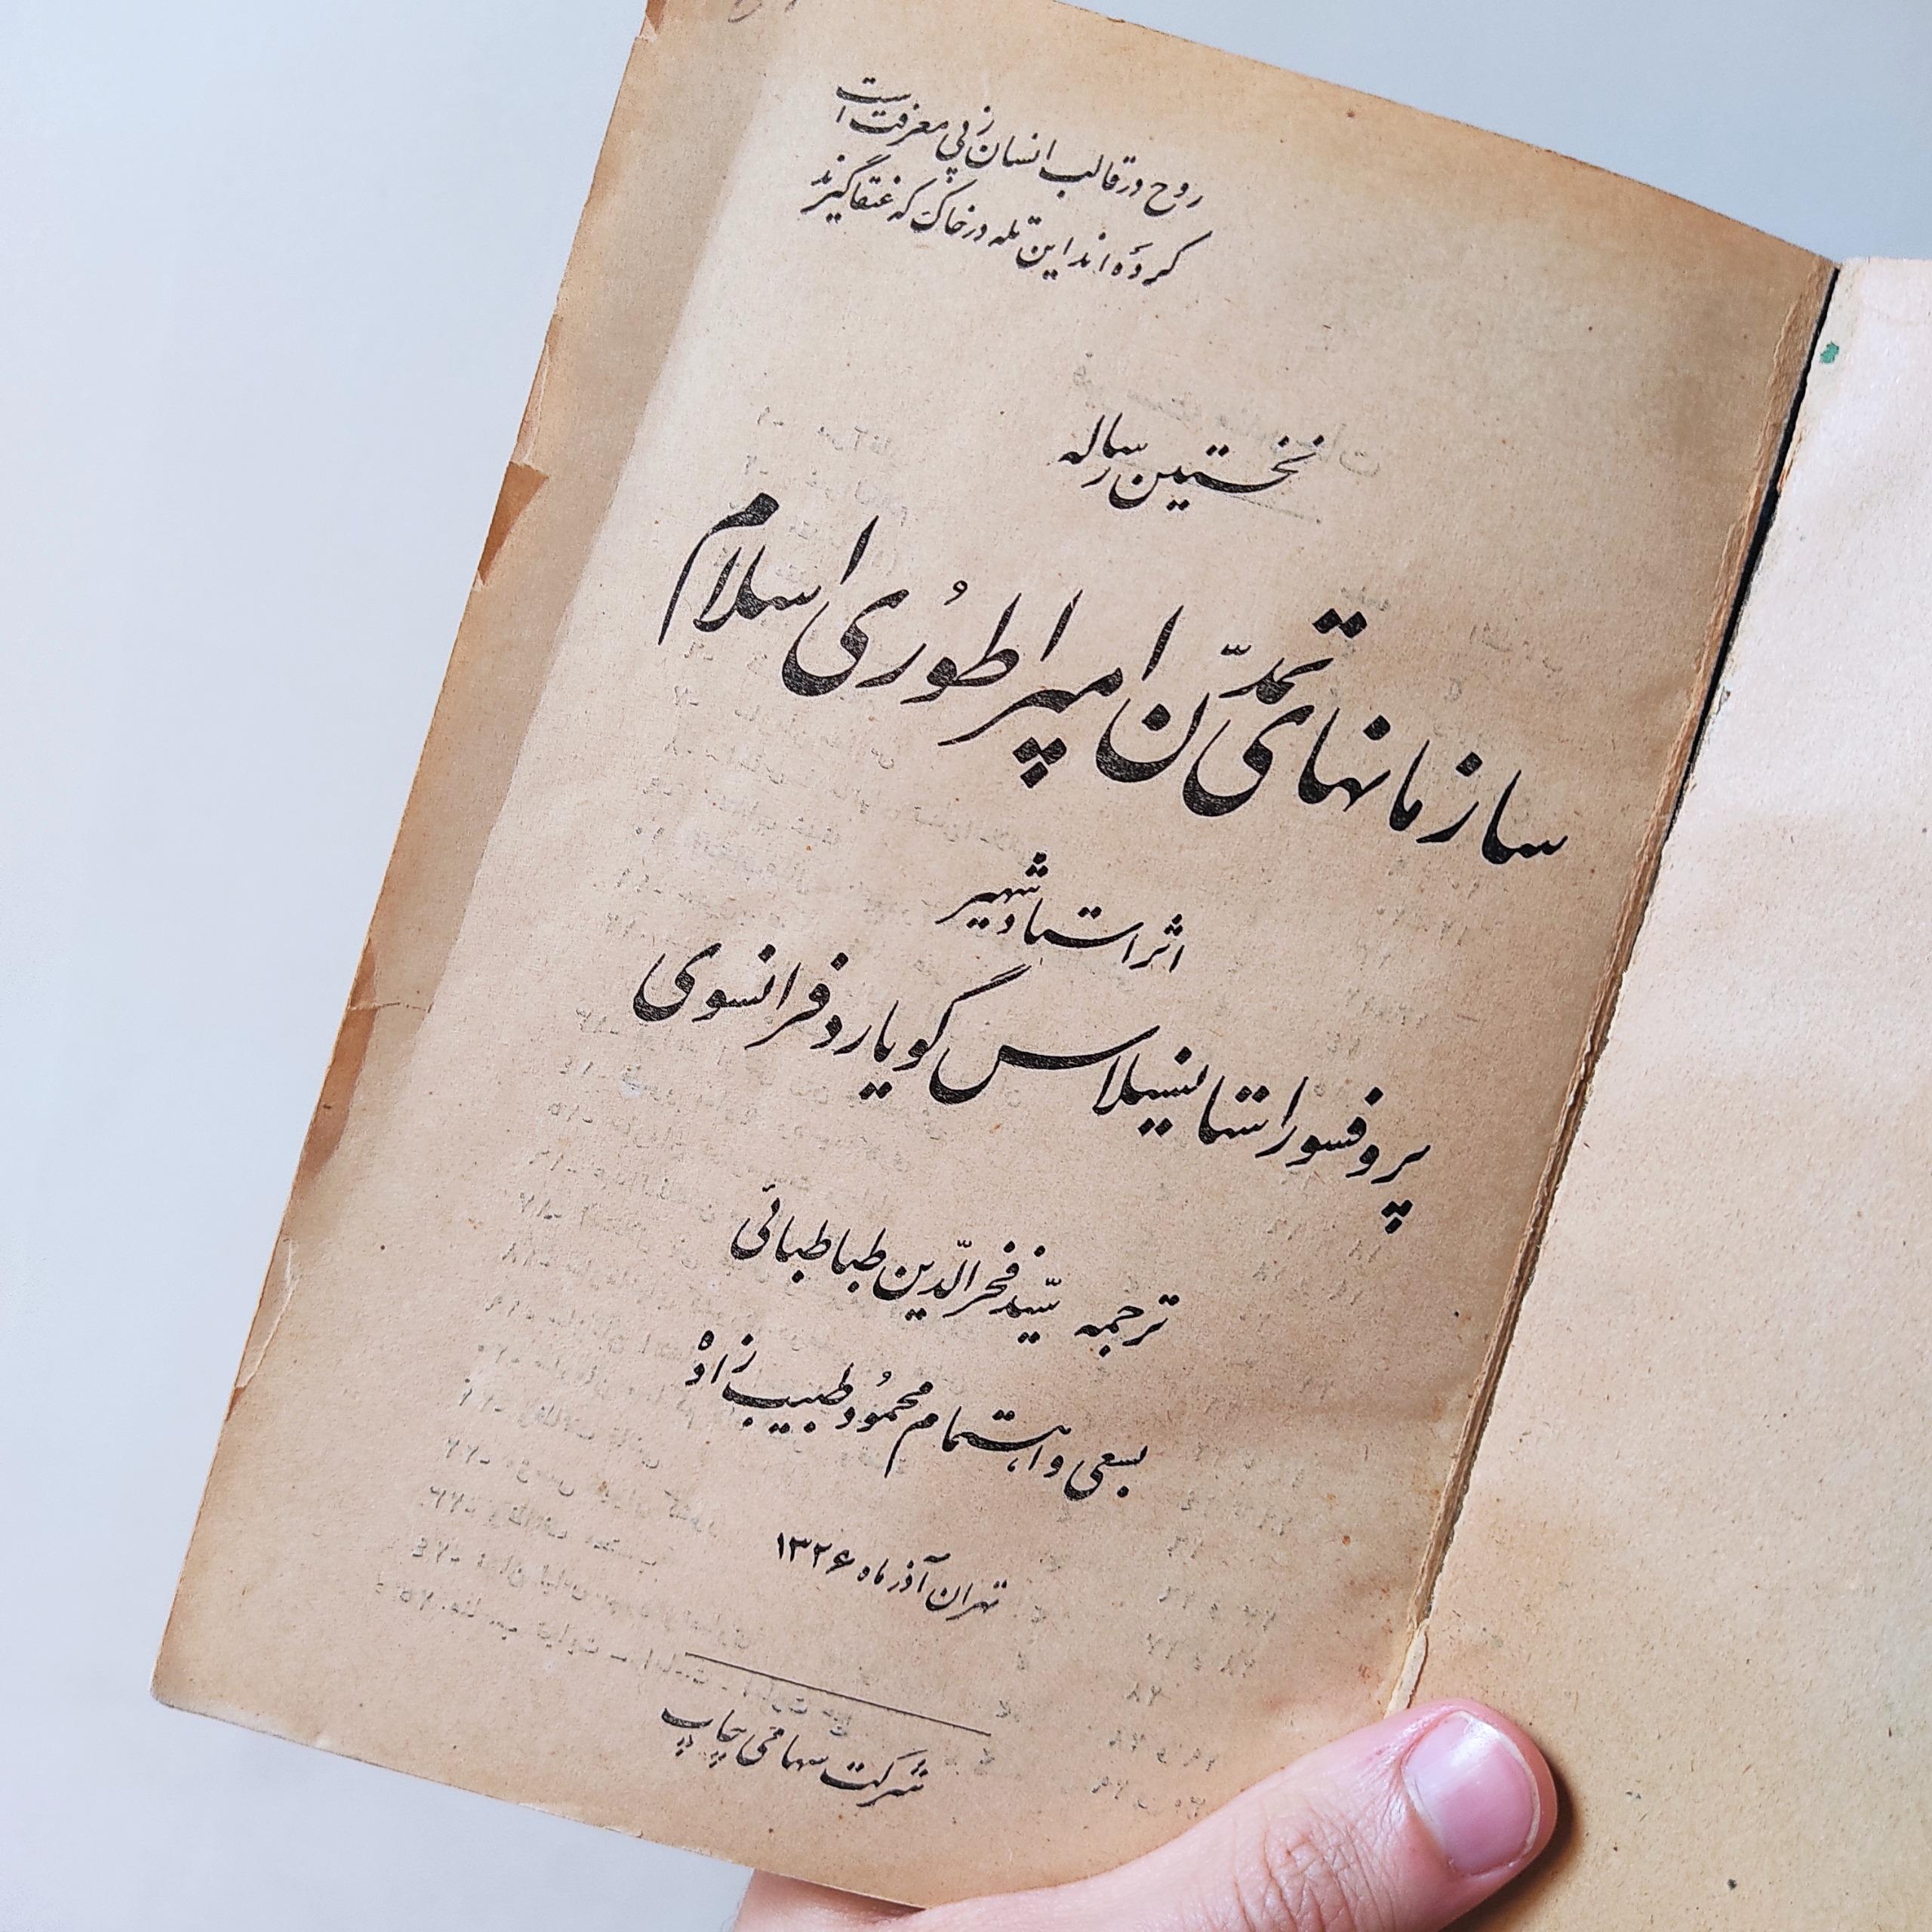 روح در قالب انسان ز پی معرفت است
کرده اند این تله در خاک که عنقا گیرند
نخستین رساله
سازمانهای تمدّن امپراطوُری اسلام
اثر استاد شهیر
پروفسور استانیسلاس گویارد فرانسوی
ترجمه سیّد فخرالدّین طباطبائی
بسعی و اهتمام محموُد طبیب زاده
تهران آذر ماه ۱۳۲۶
شرکت سهامی چاپ